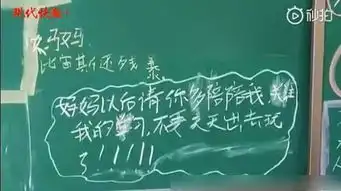 现代快报
秒拍
妈妈
比西斯还残暴
妈妈以后请你多陪陪我,关注
我的学习,不要天天出去玩
了!!!!!